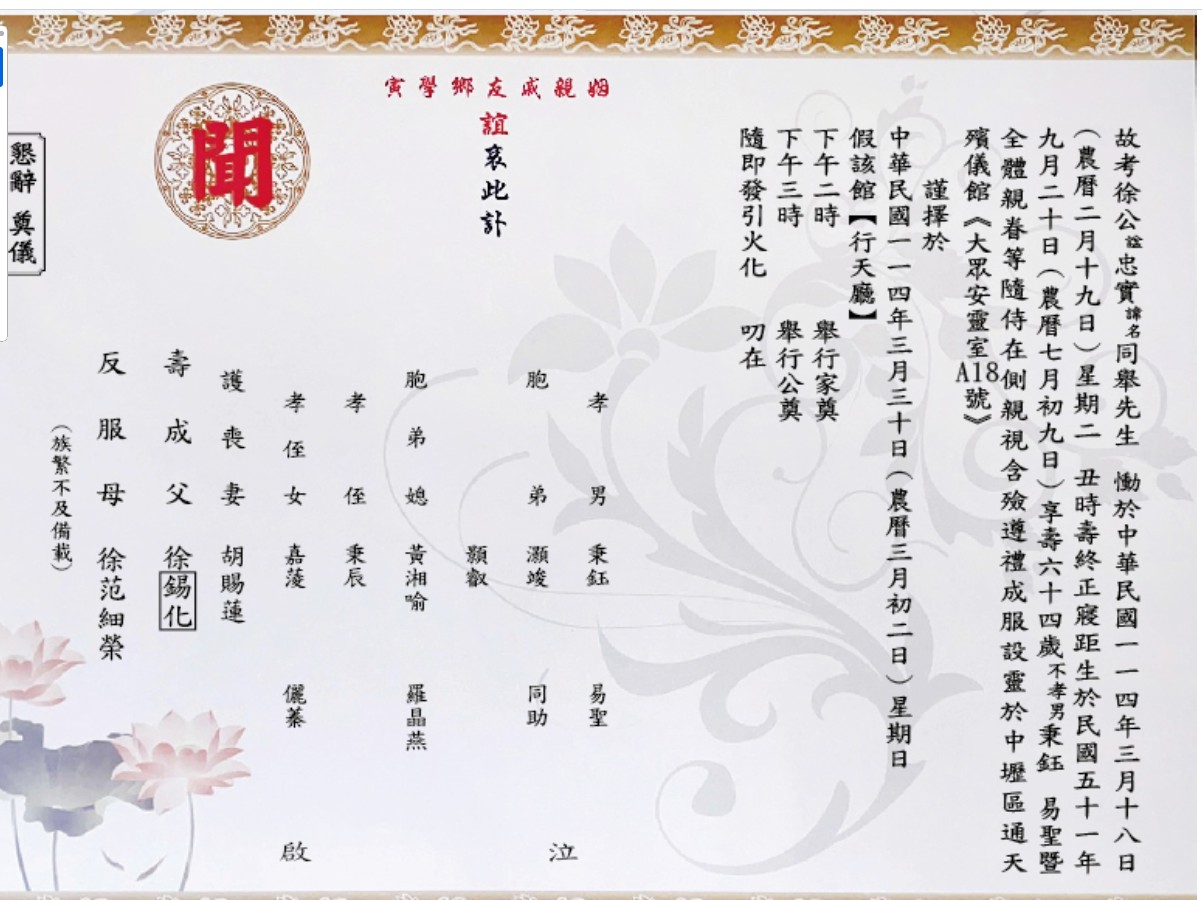 故考徐公諡忠實諱名同舉先生　慟於中華民國一一四年三月十八日
（農曆二月十九日）星期二　丑時壽終正寢距生於民國五十一年
九月二十日（農曆七月初九日）享壽六十四歲不孝男秉鈺　易聖暨
全體親眷等隨侍在側親視含殮遵禮成服設靈於中壢區通天
殯儀館《大眾安靈室A18號》
謹擇於
中華民國一一四年三月三十日（農曆三月初二日）星期日
假該館【行天廳】
下午二時　舉行家奠
下午三時　舉行公奠
隨即發引火化　叨在
姻親戚友鄉學寅
誼哀此訃
聞
懇辭 奠儀
孝男　秉鈺　易聖
胞弟　灝竣　同助
顥叡
胞弟媳　黃湘喻　羅晶燕
孝侄　秉辰
孝侄女　嘉蓤　儷蓁
護喪妻　胡賜蓮
壽成父　徐錫化
反服母　徐范細榮
（族繁不及備載）
泣
啟